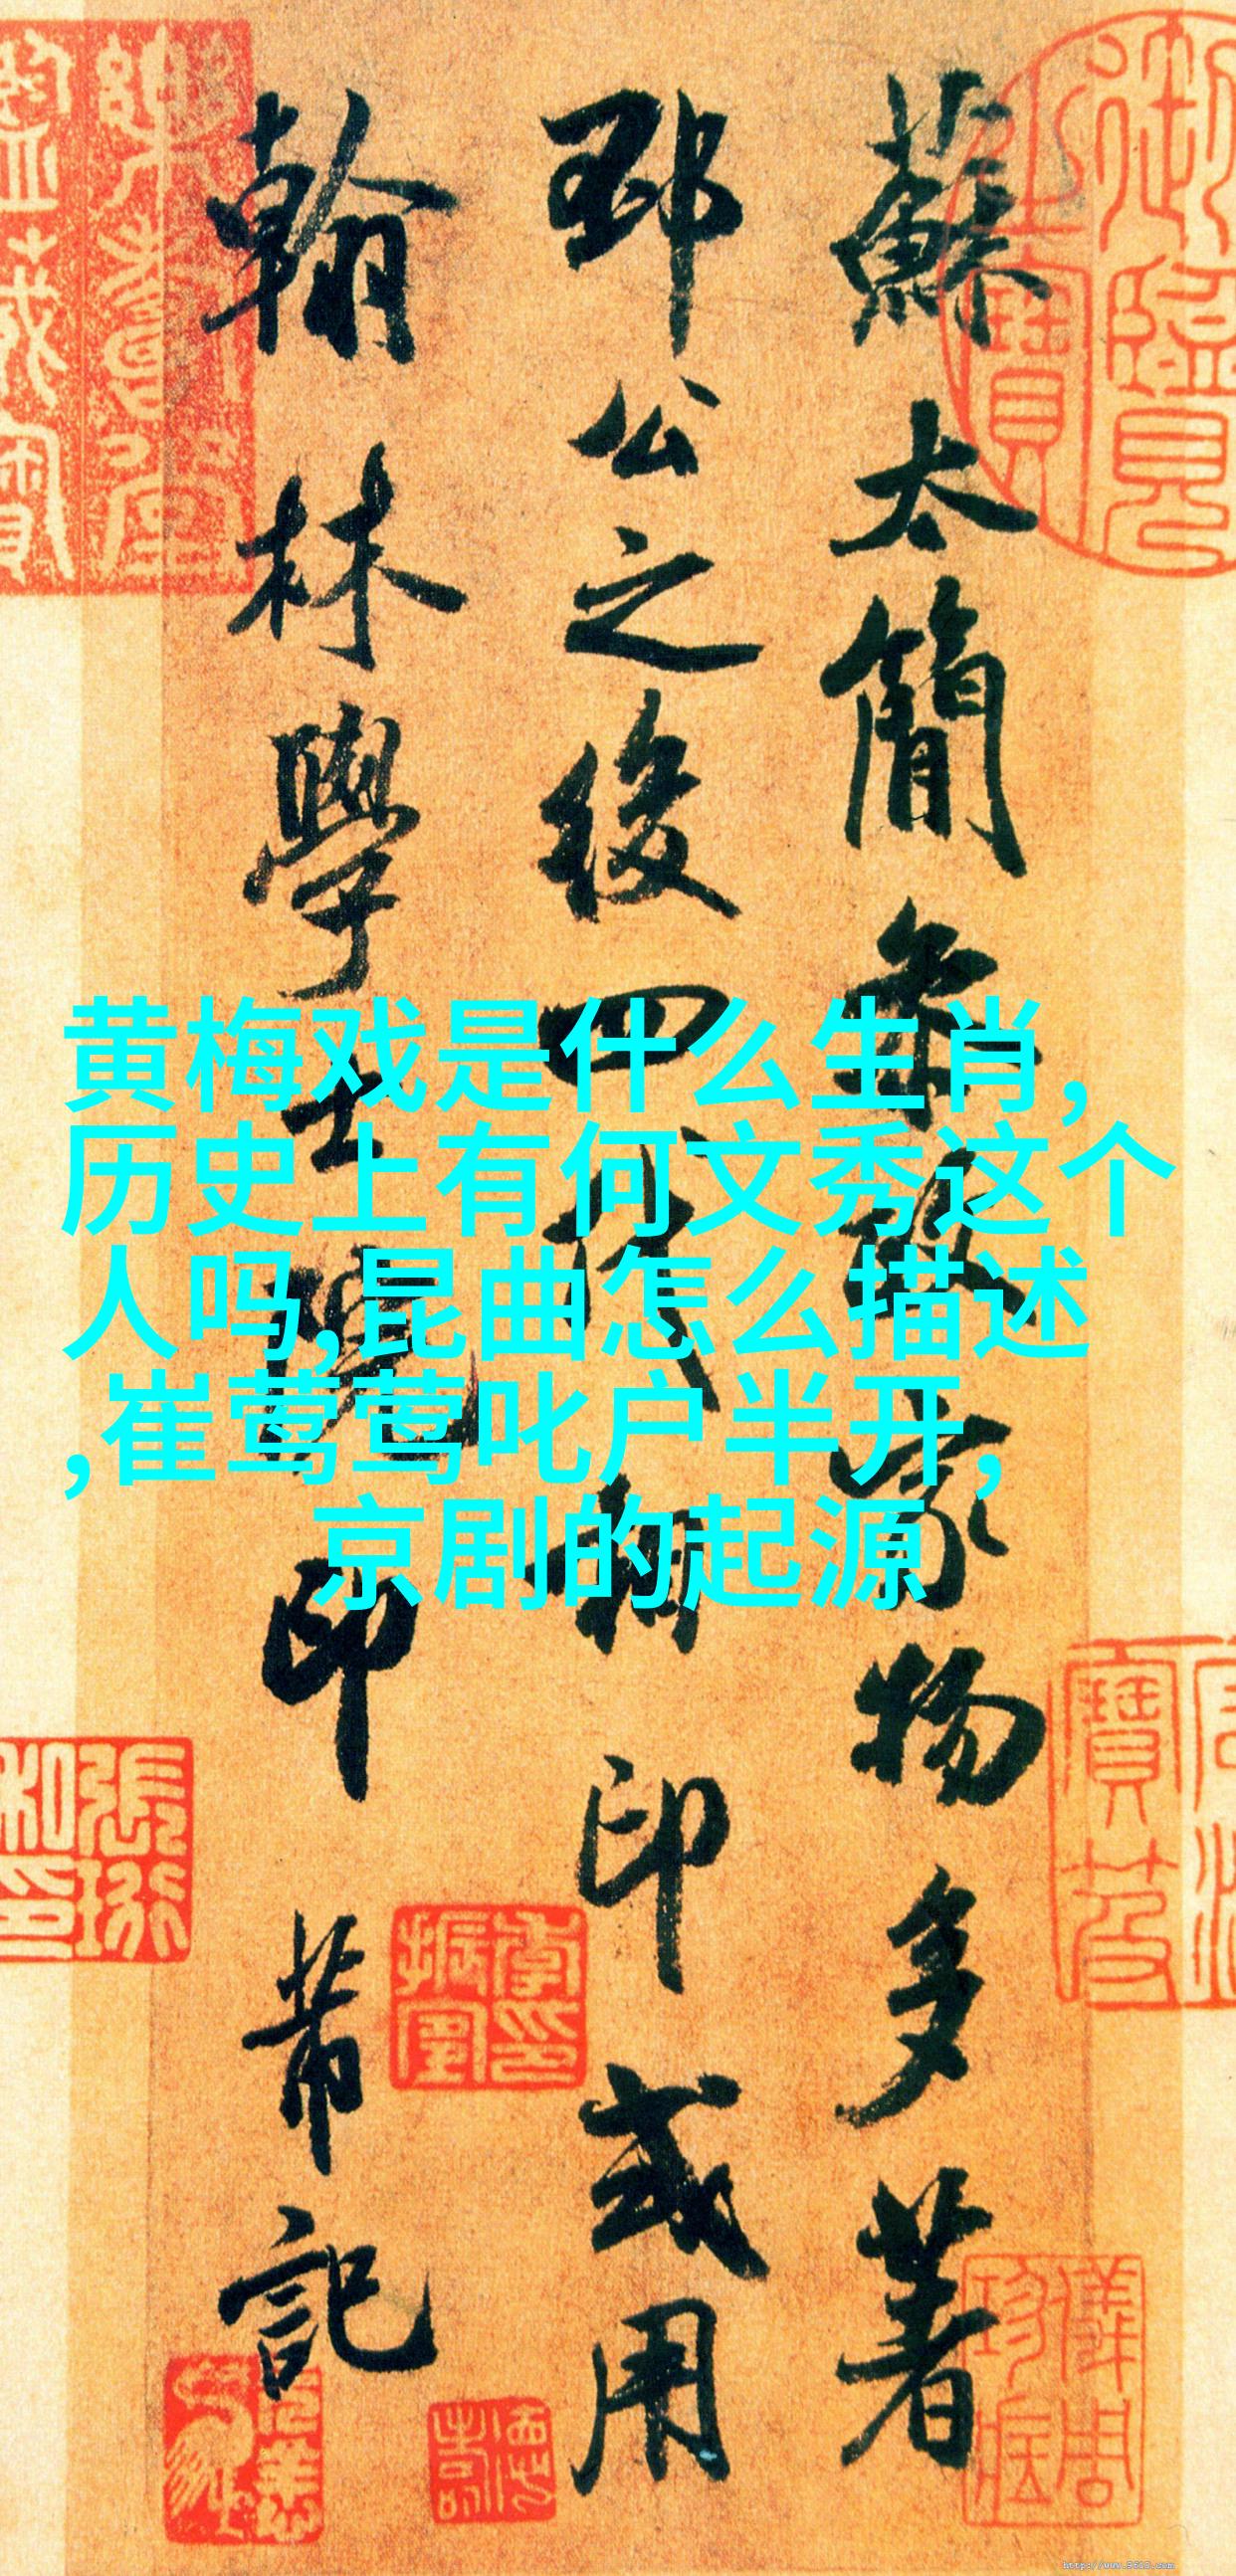 蘇太簡叅政家物多著
邳公之後四代相印或用
翰林學士院印芾記
黄梅戏是什么生肖,
历史上有何文秀这个
人吗,昆曲怎么描述
,崔莺莺叱户半开,
京剧的起源